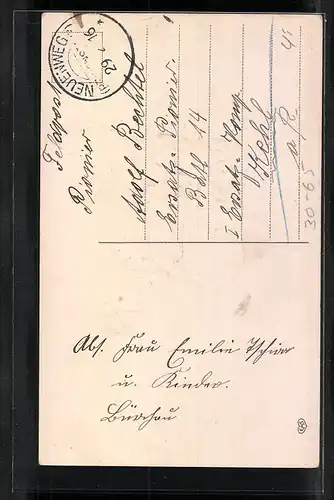 NEUENWEG
29
16
Feldpost
Pionier
Adolf Bechtel
Ersatz-Pionier
Batl 14
I Ersat. Komp
Kehl
a/R.
45
30-65
Abs. Frau Emilie Tschirr
u. Kinder.
Bürchau